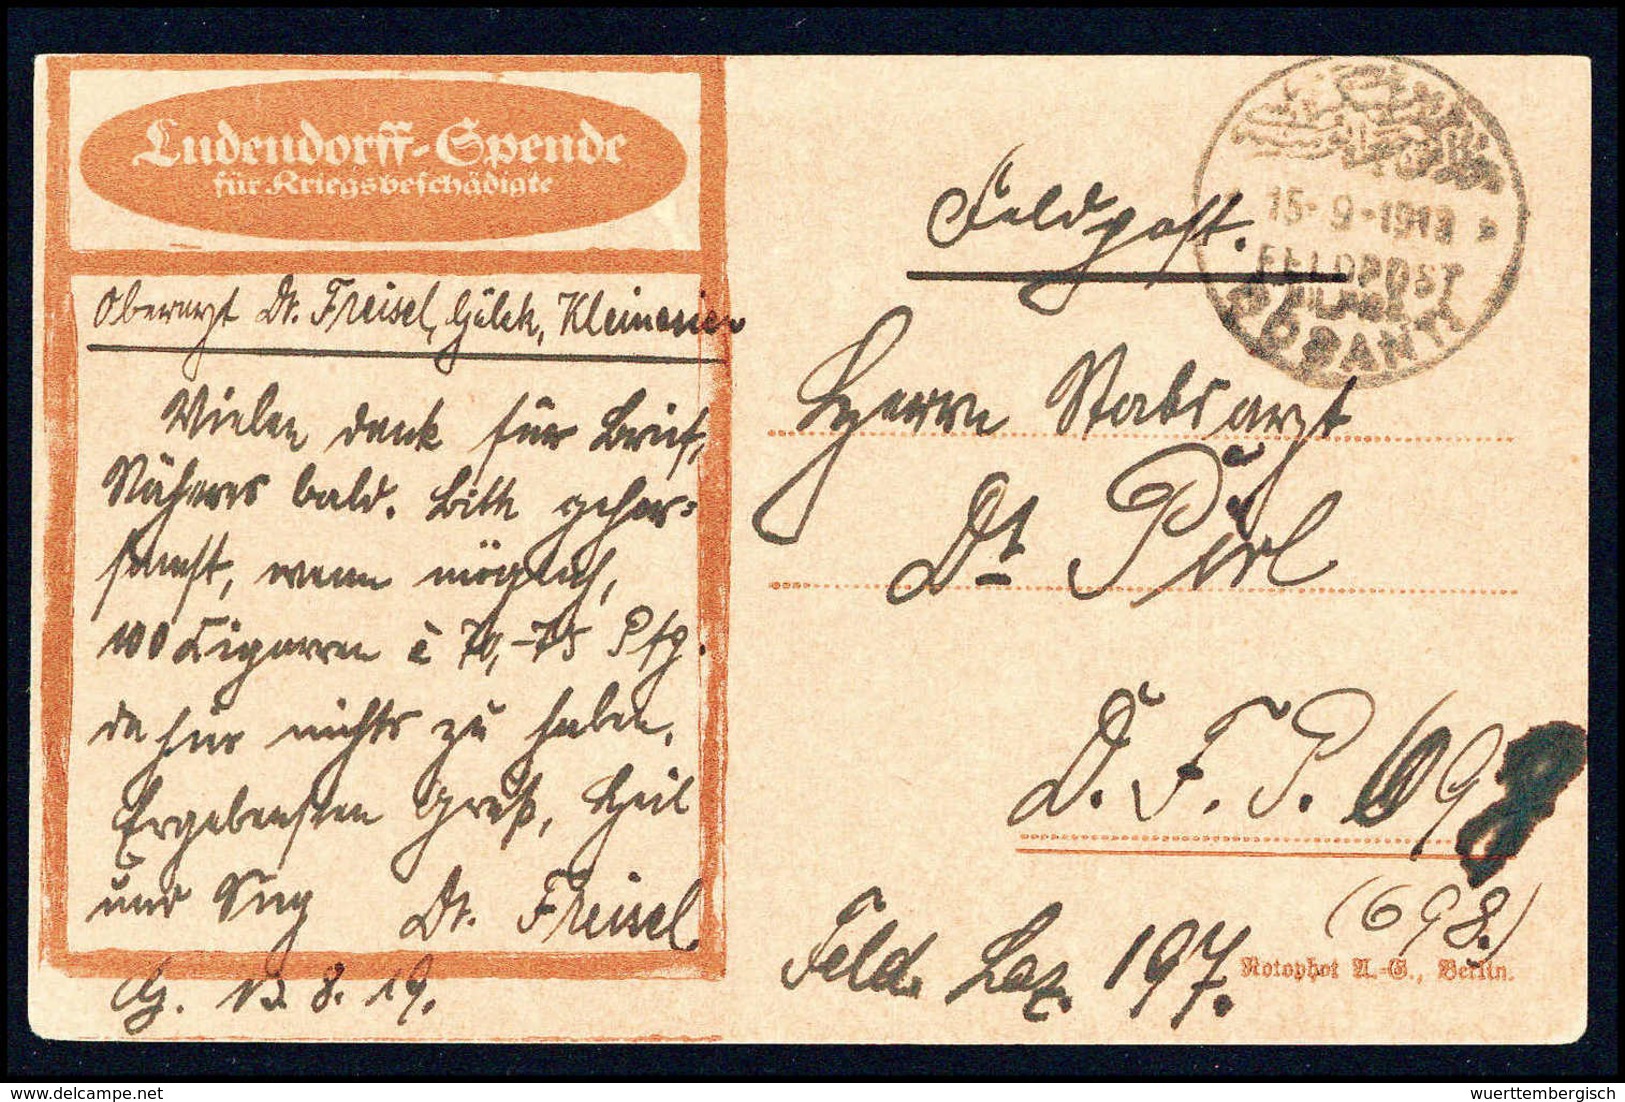 Ludendorff-Spende
für Kriegsbeschädigte
Oberarzt Dr. Freisel, Gülek, Kleinasien
Vielen Dank für Brief,
Näheres bald. Bitte gehor=
samst, wenn möglich,
100 Zigarren à 70,-75 Pfg.
dafür nichts zu haben.
Ergebensten Gruß, Heil
und Sieg Dr. Freisel
G. 13. 8. 19.
Feldpost.
15-9-1918
FELDPOST
BOSANTI
Herrn Stabsarzt
Dr. Pürl
D. F. P. 698
(698.)
Feld. Laz. 197.
Rotophot A.-G., Berlin.
delcampe.net
wuerttembergisch